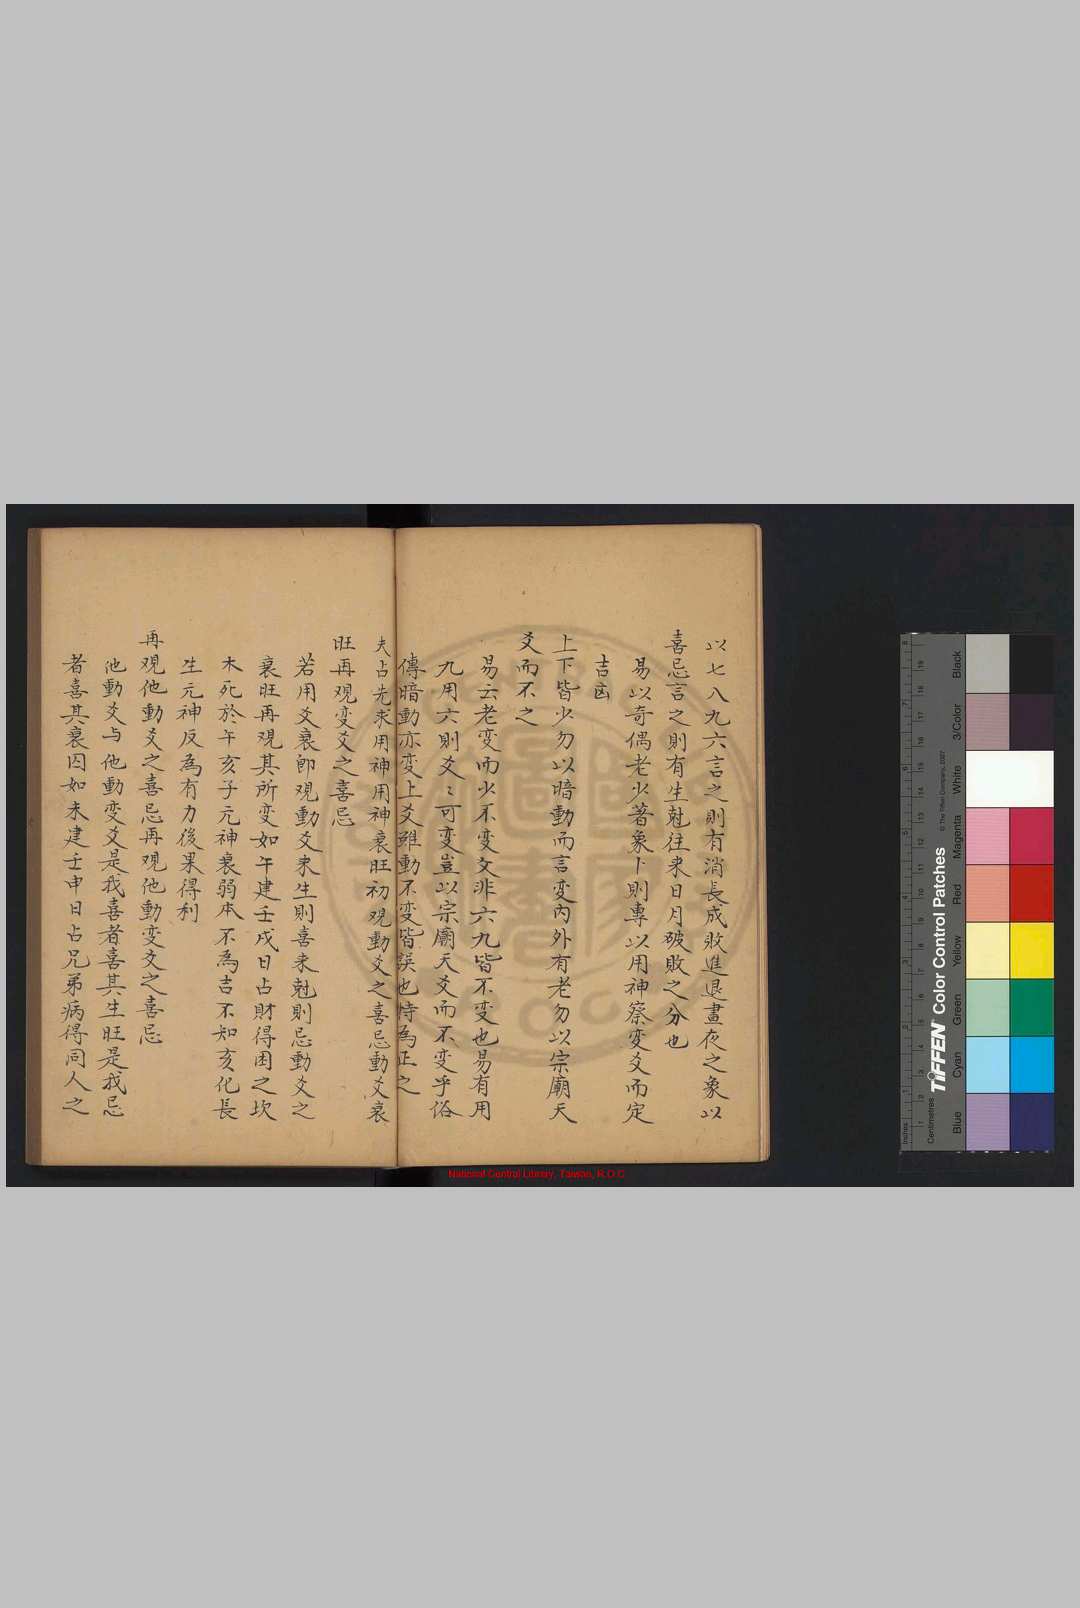 以七八九六言之則有消長成敗進退晝夜之象以
喜忌言之則有生尅往来日月破敗之分也
易以奇偶老少著象卜則專以用神察変爻而定
吉凶
上下皆少勿以暗動而言変内外有老勿以宗廟天
爻而不之
易云老变而少不变文非六九皆不变也易有用
九用六則爻〻可变豈以宗廟天爻而不变乎俗
傳暗動亦变上爻雖動不变皆誤也特為正之
夫占先求用神用神衰旺初観動爻之喜忌動爻衰
旺再观变爻之喜忌
若用爻衰卽观動爻来生則喜来尅則忌動爻之
衰旺再观其所变如午建壬戌日占財得困之坎
木死於午亥子元神衰弱本不為吉不知亥化長
生元神反為有力後果得利
再观他動爻之喜忌再观他動变爻之喜忌
他動爻与他動变爻是我喜者喜其生旺是我忌
者喜其衰囚如未建壬申日占兄弟病得同人之
National Central Library, Taiwan, R.O.C
Inches
Centimetres
TIFFEN Color Control Patches
© The Tiffen Company, 2007
Blue
Cyan
Green
Yellow
Red
Magenta
White
3/Color
Black